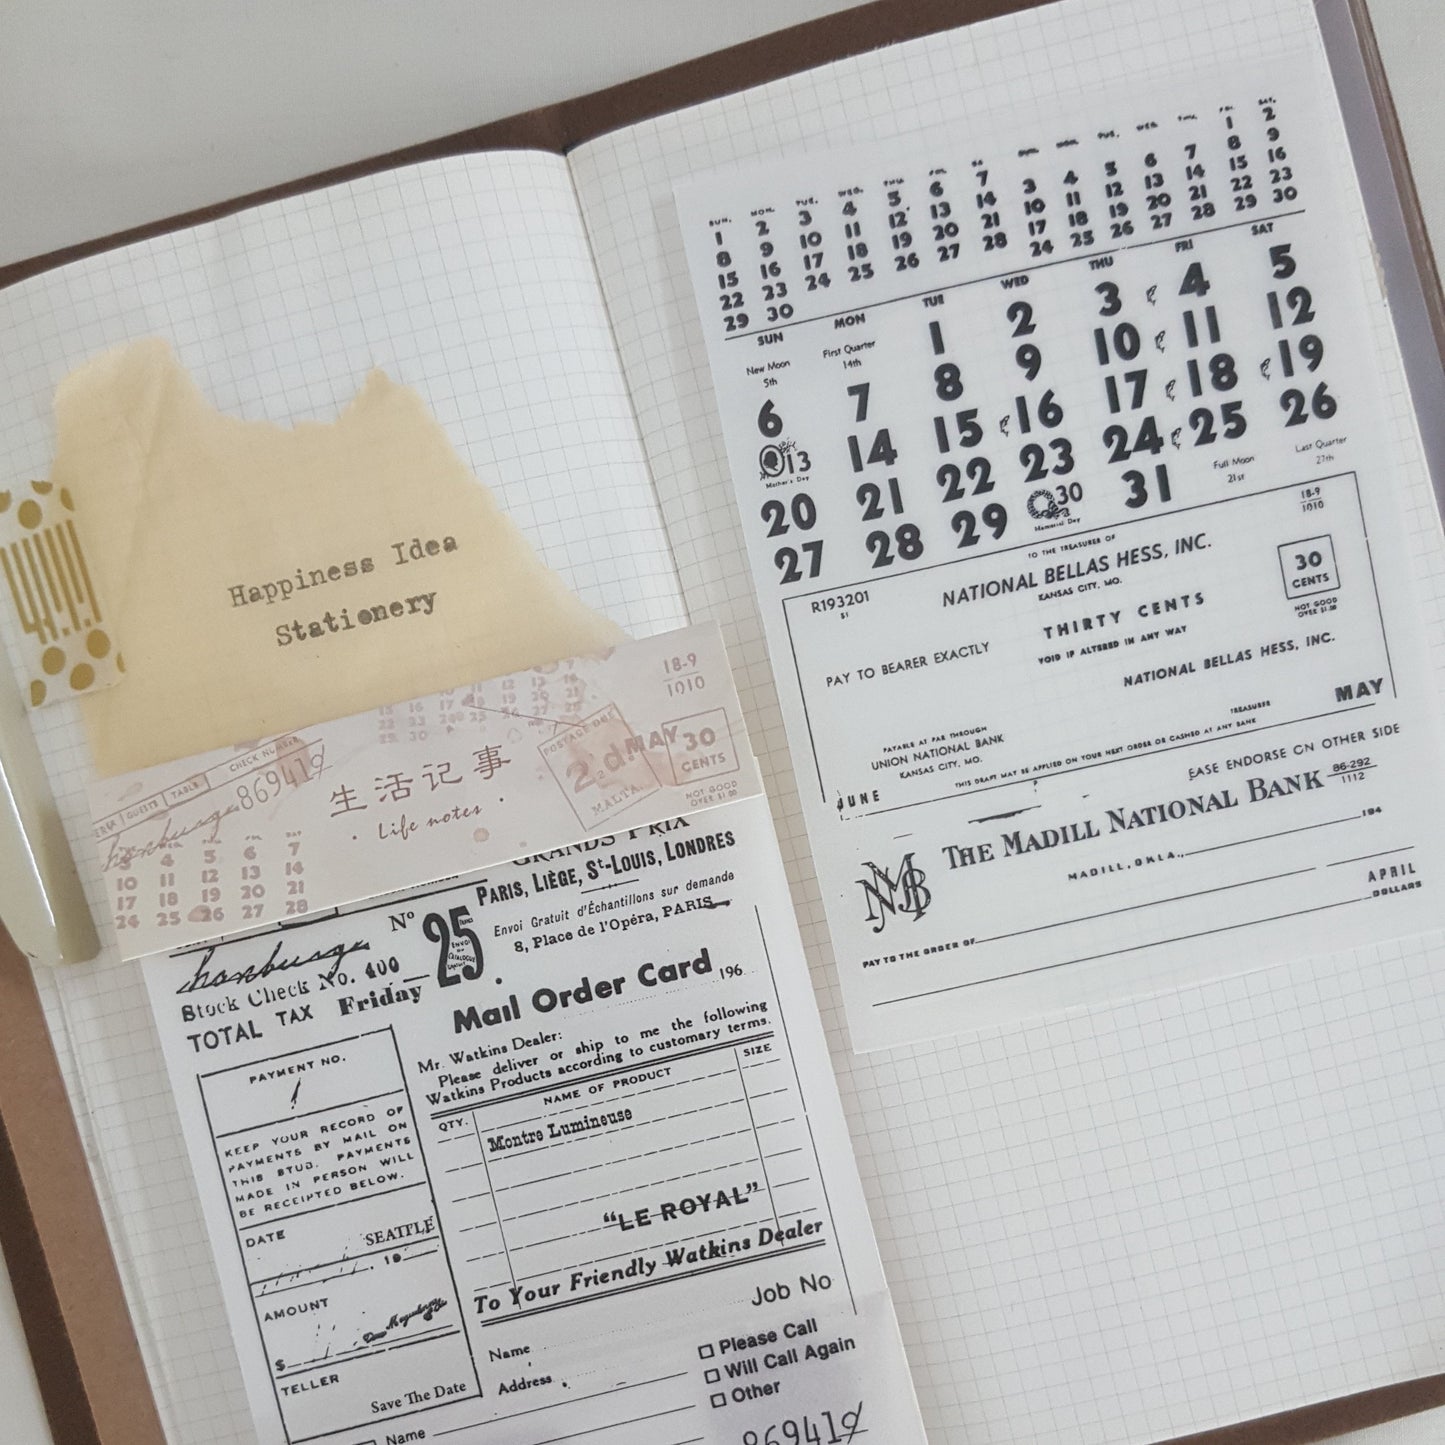 Happiness Idea
Stationery
18-9
1010
CHECK NUMBER
GUESTS TABLE
869419
生活记事
· Life notes ·
POSTAGE DUE
2d.
MALTA.
MAY
30
CENTS
NOT GOOD
OVER $1.00
FRI. SAT
3 4 5 6 7
10 11 12 13 14
17 18 19 20 21
24 25 26 27 28
GRANDS PRIX
PARIS, LIÈGE, St-LOUIS, LONDRES
Envoi Gratuit d'Échantillons sur demande
8, Place de l'Opéra, PARIS
Nº 25
Stock Check No. 400
TOTAL TAX Friday
Mail Order Card 196
Mr. Watkins Dealer:
Please deliver or ship to me the following
Watkins Products according to customary terms.
QTY. NAME OF PRODUCT SIZE
Montre Lumineuse
"LE ROYAL"
To Your Friendly Watkins Dealer
Job No
Name
Address
Please Call
Will Call Again
Other
Name
869419
PAYMENT NO.
KEEP YOUR RECORD OF
PAYMENTS BY MAIL ON
THIS STUB. PAYMENTS
MADE IN PERSON WILL
BE RECEIPTED BELOW.
DATE
SEATTLE
19
AMOUNT
$
TELLER
Save The Date
SUN. MON. TUE. WED. THU. FRI. SA
1 2 3 4 5 6 7
8 9 10 11 12 13 14
15 16 17 18 19 20 21
22 23 24 25 26 27 28
29 30
SUN. MON. TUE. WED. THU. FRI. SAT.
1 2
3 4 5 6 7 8 9
10 11 12 13 14 15 16
17 18 19 20 21 22 23
24 25 26 27 28 29 30
SUN MON TUE WED THU FRI SAT
New Moon
5th
First Quarter
14th
1 2 3 4 5
6 7 8 9 10 11 12
13 14 15 16 17 18 19
Mother's Day
20 21 22 23 24 25 26
27 28 29 30 31
Memorial Day
Full Moon
21st
Last Quarter
27th
18-9
1010
TO THE TREASURER OF
NATIONAL BELLAS HESS, INC.
KANSAS CITY, MO.
R193201
51
30
CENTS
NOT GOOD
OVER $1.00
THIRTY CENTS
VOID IF ALTERED IN ANY WAY
PAY TO BEARER EXACTLY
NATIONAL BELLAS HESS, INC.
TREASURER
MAY
PAYABLE AT PAR THROUGH
UNION NATIONAL BANK
KANSAS CITY, MO.
THIS DRAFT MAY BE APPLIED ON YOUR NEXT ORDER OR CASHED AT ANY BANK
JUNE
EASE ENDORSE ON OTHER SIDE
THE MADILL NATIONAL BANK 86-292
1112
MADILL, OKLA., 194
APRIL
DOLLARS
PAY TO THE ORDER OF